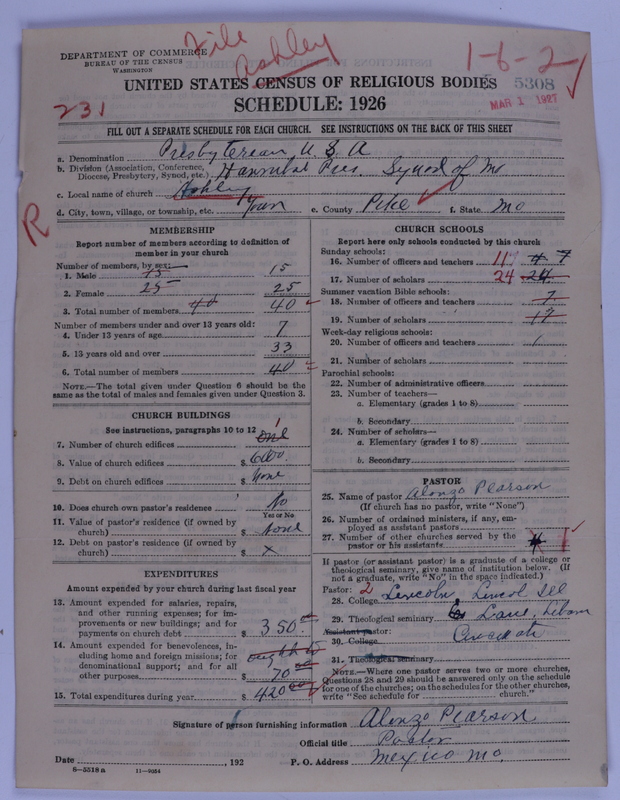 DEPARTMENT OF COMMERCE
BUREAU OF THE CENSUS
WASHINGTON
File
Ashley
1-6-2
5308
MAR 1 1927
UNITED STATES CENSUS OF RELIGIOUS BODIES
SCHEDULE: 1926
231
FILL OUT A SEPARATE SCHEDULE FOR EACH CHURCH. SEE INSTRUCTIONS ON THE BACK OF THIS SHEET
a. Denomination Presbyterian U.S.A
b. Division (Association, Conference, Diocese, Presbytery, Synod, etc.) Hannibal Pres. Synod of Mo
c. Local name of church Ashley
d. City, town, village, or township, etc. Town e. County Pike f. State Mo
R
MEMBERSHIP
Report number of members according to definition of
member in your church
Number of members, by sex:
1. Male 15 15
2. Female 25 25
3. Total number of members 40 40
Number of members under and over 13 years old:
4. Under 13 years of age 7
5. 13 years old and over 33
6. Total number of members 40
NOTE.—The total given under Question 6 should be the
same as the total of males and females given under Question 3.
CHURCH BUILDINGS
See instructions, paragraphs 10 to 12
7. Number of church edifices one 1
8. Value of church edifices $ 6000
9. Debt on church edifices $ None
10. Does church own pastor's residence No
Yes or No
11. Value of pastor's residence (if owned by
church) $ None
12. Debt on pastor's residence (if owned by
church) $ x
EXPENDITURES
Amount expended by your church during last fiscal year
13. Amount expended for salaries, repairs,
and other running expenses; for im-
provements or new buildings; and for
payments on church debt $ 350.00
14. Amount expended for benevolences, in-
cluding home and foreign missions; for
denominational support; and for all
other purposes $ 70.00
15. Total expenditures during year $ 420.00
CHURCH SCHOOLS
Report here only schools conducted by this church
Sunday schools:
16. Number of officers and teachers 11 4 7
17. Number of scholars 24 24
Summer vacation Bible schools:
18. Number of officers and teachers 7
19. Number of scholars 17
Week-day religious schools:
20. Number of officers and teachers
21. Number of scholars
Parochial schools:
22. Number of administrative officers
23. Number of teachers—
a. Elementary (grades 1 to 8)
b. Secondary
24. Number of scholars—
a. Elementary (grades 1 to 8)
b. Secondary
PASTOR
25. Name of pastor Alonzo Pearson
(If church has no pastor, write "None")
26. Number of ordained ministers, if any, em-
ployed as assistant pastors
27. Number of other churches served by the
pastor or his assistants 1
If pastor (or assistant pastor) is a graduate of a college or
theological seminary, give name of institution below. (If
not a graduate, write "No" in the space indicated.)
Pastor: 2
28. College Lincoln, Lincoln Ill
29. Theological seminary Lane,
Assistant pastor: Cincinati
30. College
31. Theological seminary
NOTE.—Where one pastor serves two or more churches,
Questions 28 and 29 should be answered only on the schedule
for one of the churches; on the schedules for the other churches,
write "See schedule for church."
Signature of person furnishing information Alonzo Pearson
Official title Pastor
Date , 192 P. O. Address Mexico Mo.
6—5518 a 11—9054